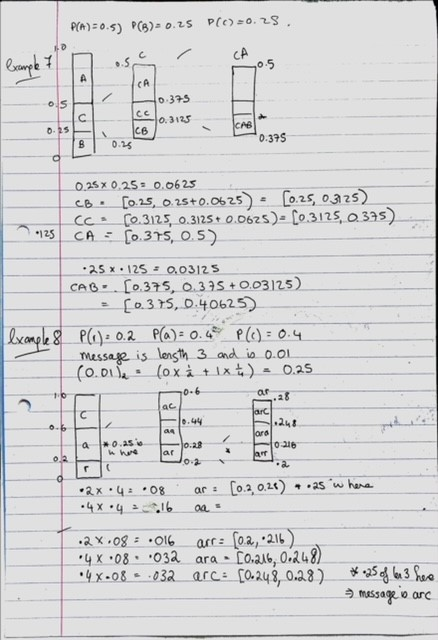 P(A)=0.5, P(B)=0.25 P(C)=0.25.
Example 7
1.0
A
0.5
C
0.25
B
0
C
0.5
CA
0.375
CC
0.3125
CB
0.25
CA
0.5
CAB *
0.375
0.25 x 0.25 = 0.0625
CB = [0.25, 0.25+0.0625) = [0.25, 0.3125)
CC = [0.3125, 0.3125+0.0625) = [0.3125, 0.375)
.125 CA = [0.375, 0.5)
.25 x .125 = 0.03125
CAB = [0.375, 0.375+0.03125)
= [0.375, 0.40625)
Example 8 P(r)=0.2 P(a)=0.4 P(c)=0.4
message is length 3 and is 0.01
(0.01)₂ = (0x½ + 1x¼) = 0.25
1.0
c
0.6
a * 0.25 is in here
0.2
r
0.6
ac
0.44
aa
0.28
ar *
0.2
ar
.28
arc
.248
ara
0.216
arr
.2
.2 x .4 = .08 ar = [0.2, 0.28) * .25 is here
.4 x .4 = .16 aa =
.2 x .08 = .016 arr = [0.2, .216)
.4 x .08 = .032 ara = [0.216, 0.248)
.4 x .08 = .032 arc = [0.248, 0.28) * .25 of len 3 here
⇒ message is arc